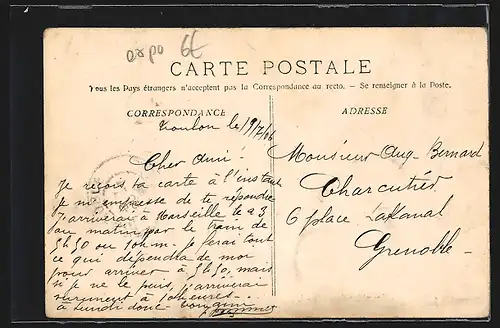 expo 6€
CARTE POSTALE
Tous les Pays étrangers n'acceptent pas la Correspondance au recto. — Se renseigner à la Poste.
CORRESPONDANCE
Toulon le 19/7/
Cher Ami!
Je reçois ta carte à l'instant
Je m'empresse de te répondre
J'arriverai à Marseille le 23
au matin par le train de
5h50 ou 10h m. Je ferai tout
ce qui dépendra de moi
pour arriver à 5h50, mais
si je ne le puis, j'arriverai
sûrement à 10 heures.
à Lundi donc ton ami
ADRESSE
Monsieur Aug. Bernard
Charcutier
6 place Lakanal
Grenoble